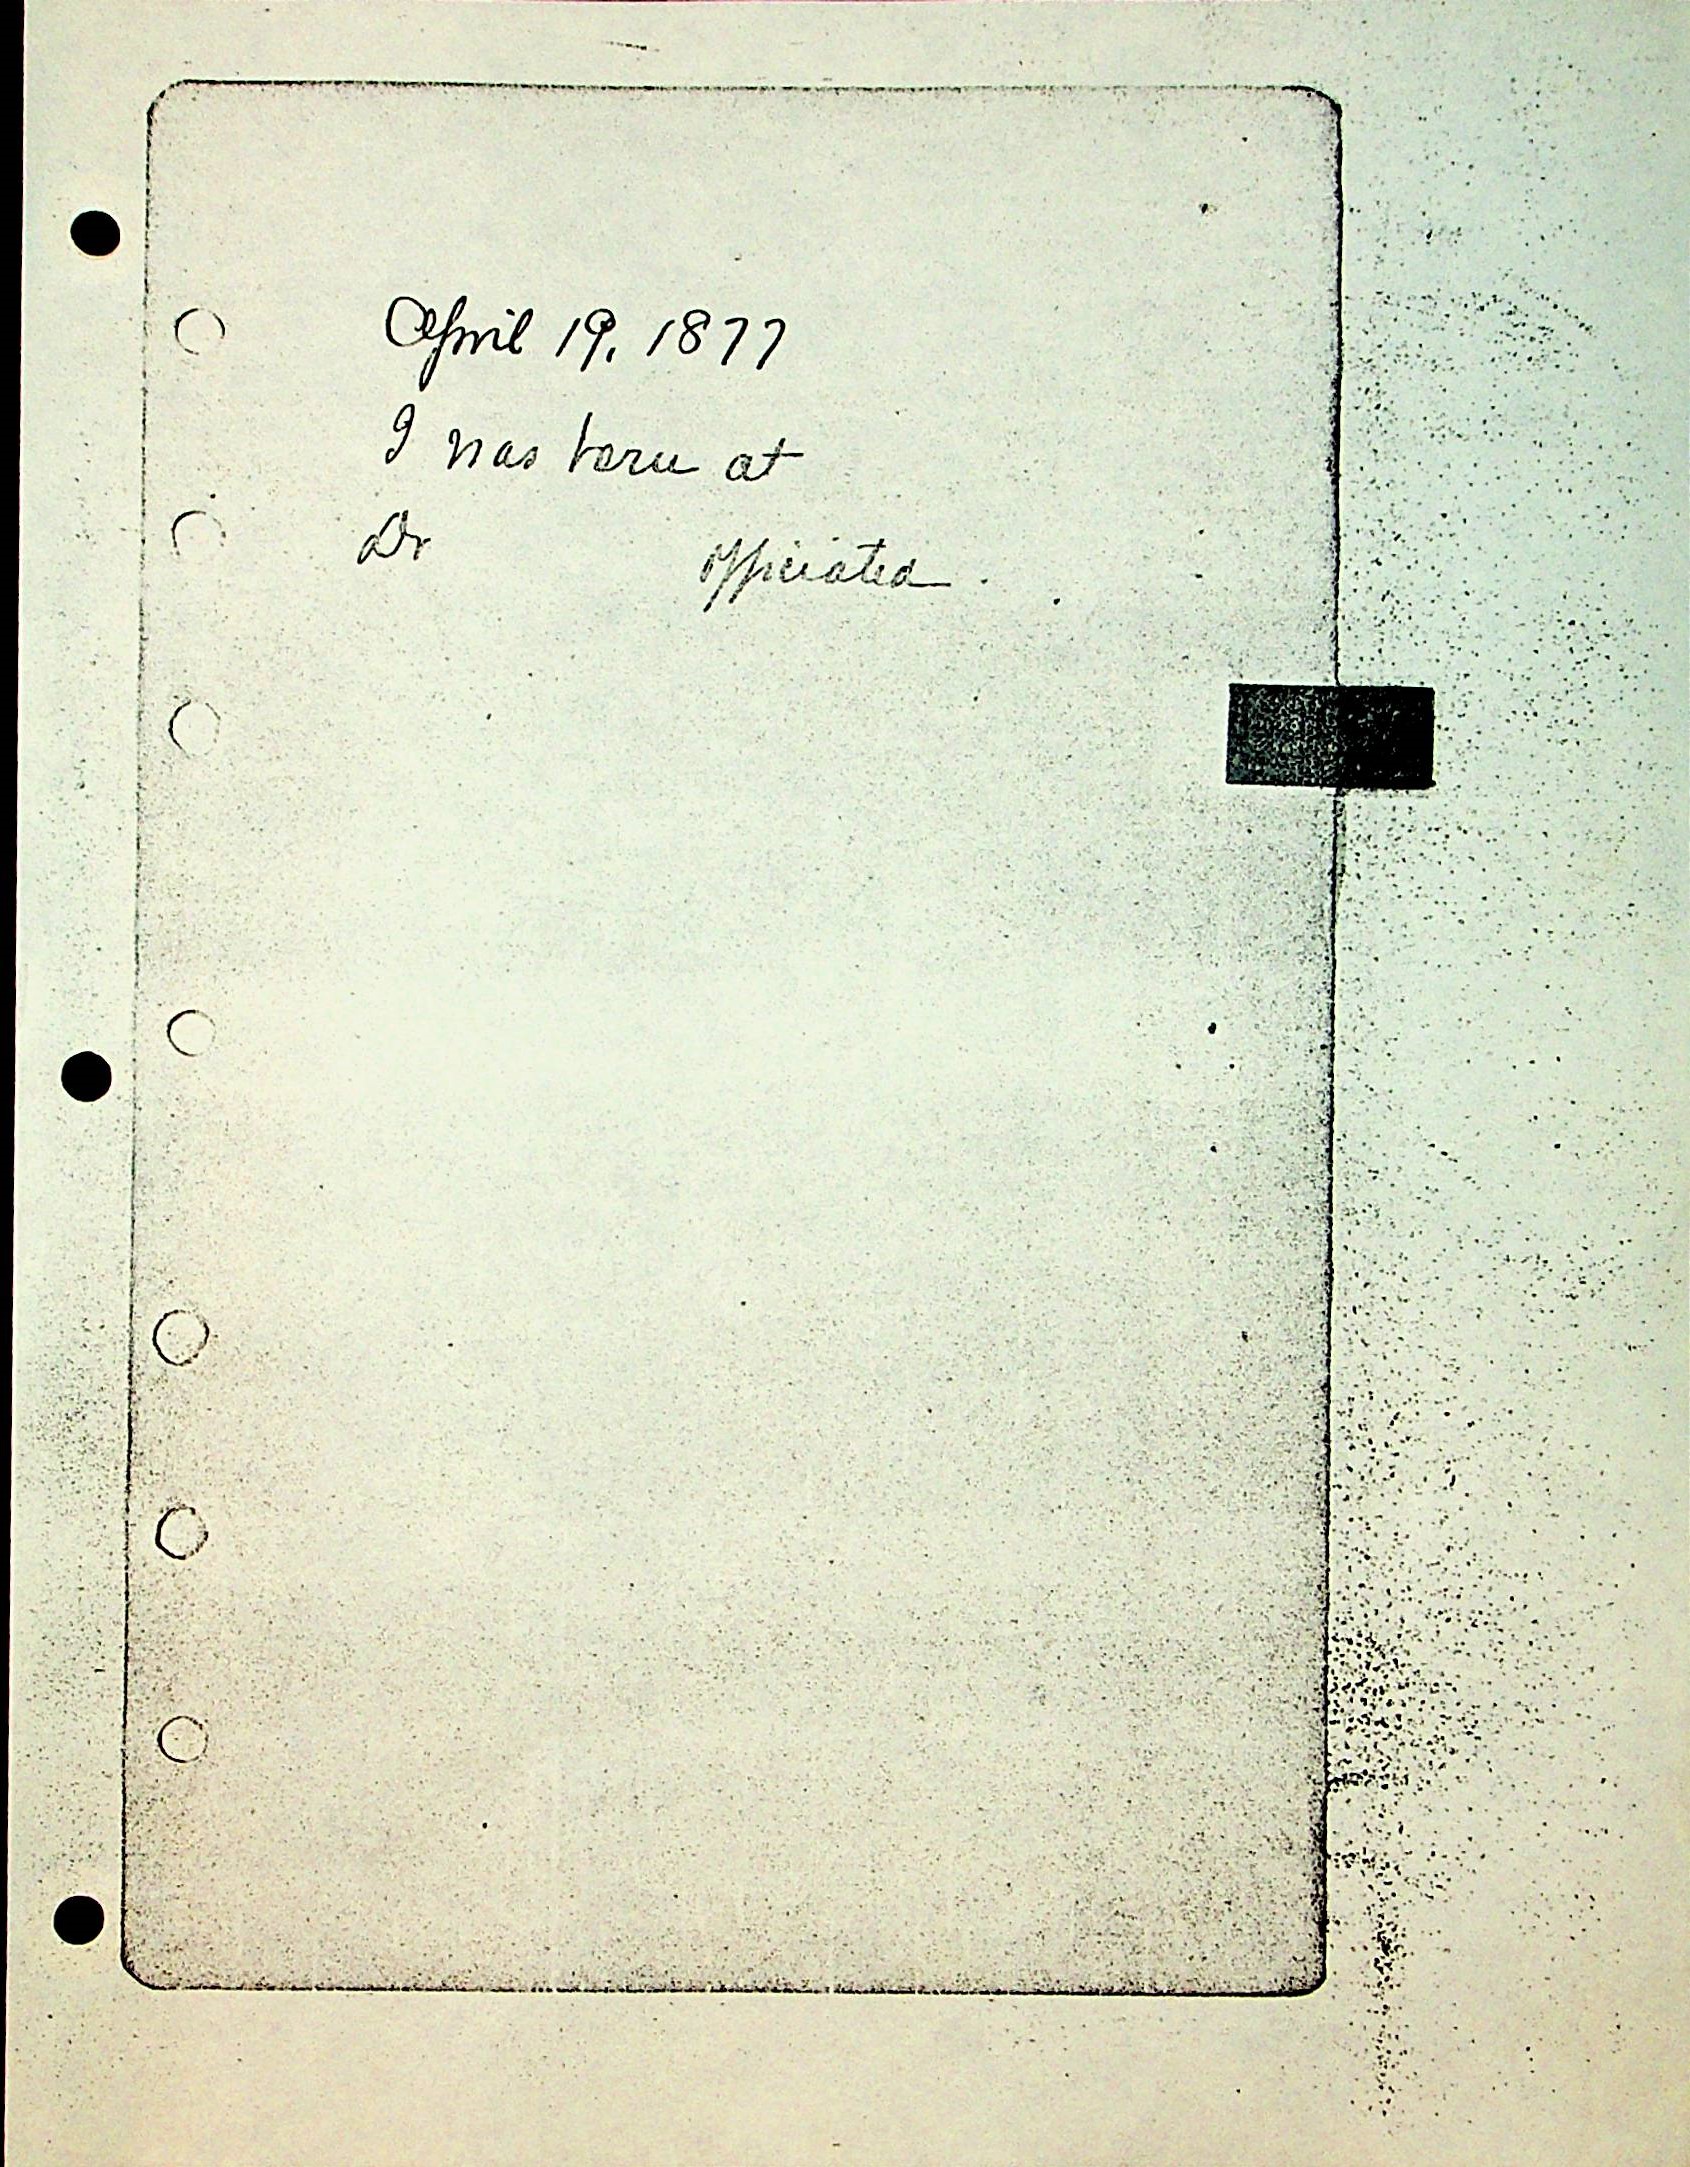 April 19, 1877
I was born at
Dr officiated.